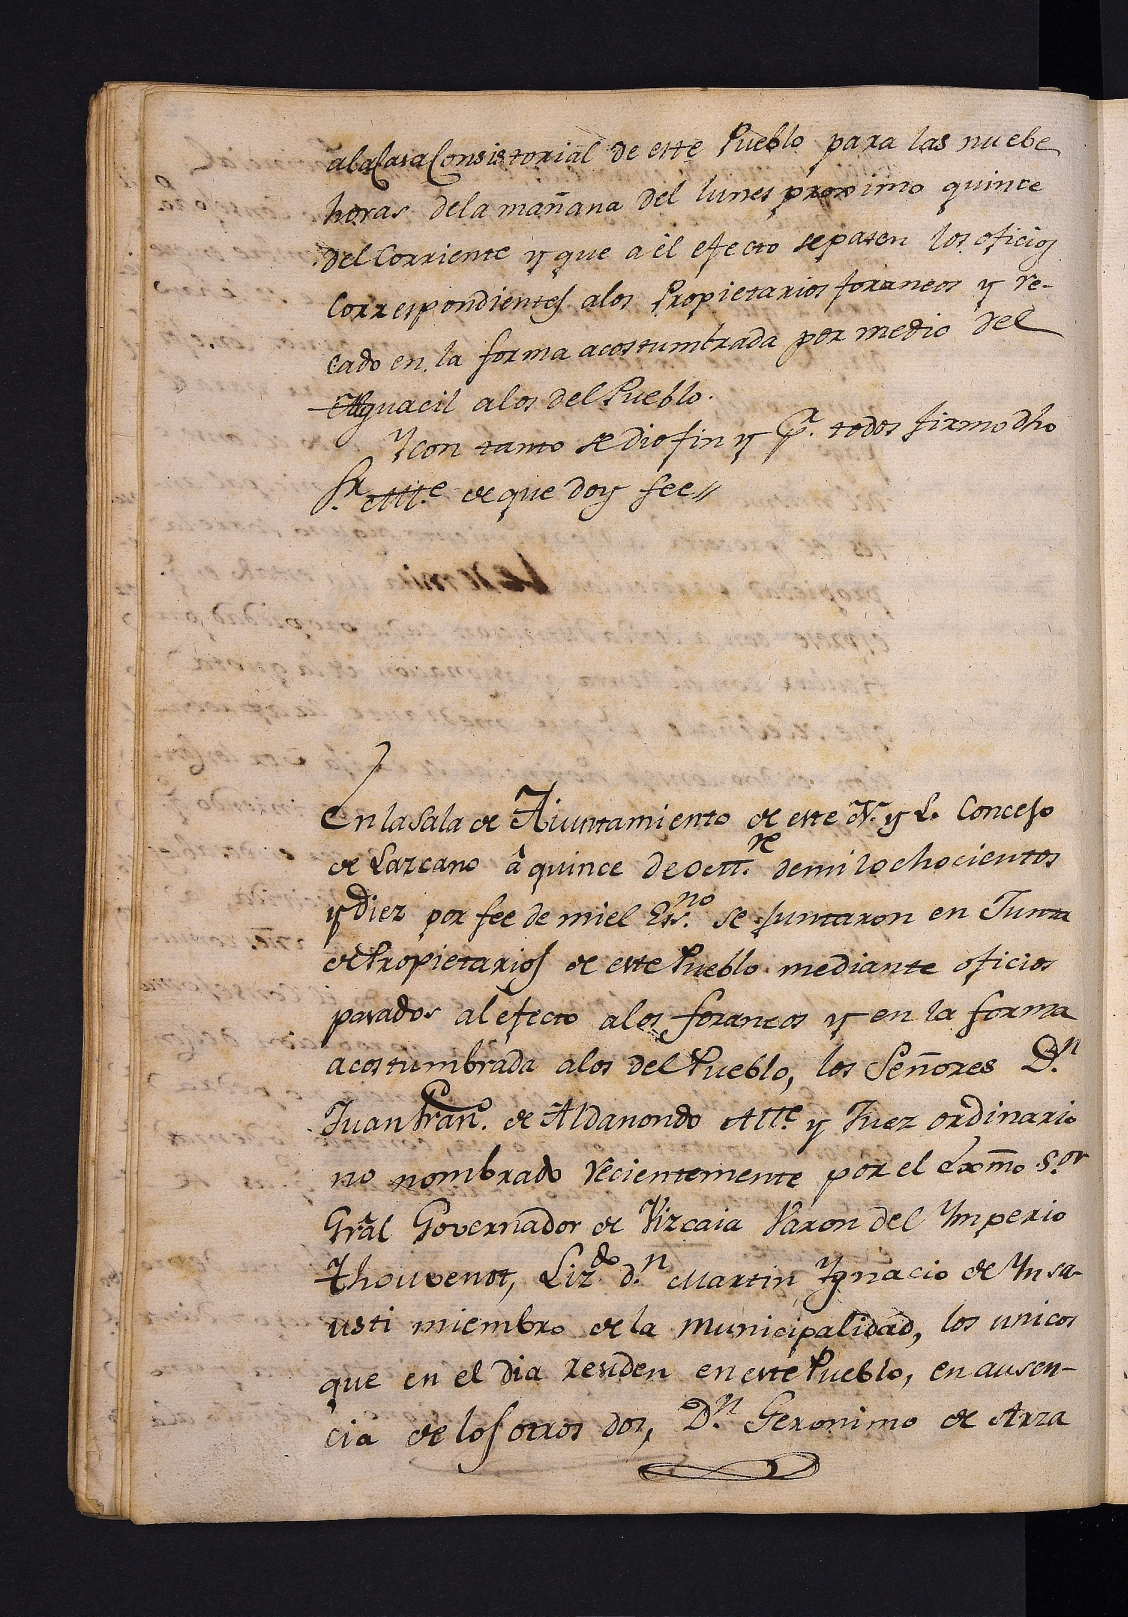 ala Casa Consistorial de este Pueblo para las nuebe
horas dela mañana del lunes proximo quince
del Corriente y que a él efecto se pasen los oficios
Correspondientes alos Propietarios foraneos y re-
cado en la forma acostumbrada por medio del
Alguacil alos del Pueblo.
Y con tanto se dio fin y P.ʳ todos firmo dho
Sr. Alle. de que doy fee //
En la Sala de Aiuntamiento de este N. y L. Concejo
de Lazcano â quince de Octt.re de mil ochocientos
y diez por fee de mi el Ess.no se juntaron en Junta
de Propietarios de este Pueblo mediante oficios
pasados al efecto alos foraneos y en la forma
acostumbrada alos del Pueblo, los Señores D.n
Juan Fran.co de Aldanondo Alle. y Juez ordinario
no nombrado recientemente por el Exmo S.or
Gral Governador de Vizcaia Varon del Ymperio
Thouvenot, Liz.do d.n Martin Ygnacio de Ynsa-
usti miembro de la Municipalidad, los unicos
que en el dia residen en este Pueblo, en ausen-
cia de los otros dos, D.n Geronimo de Arza